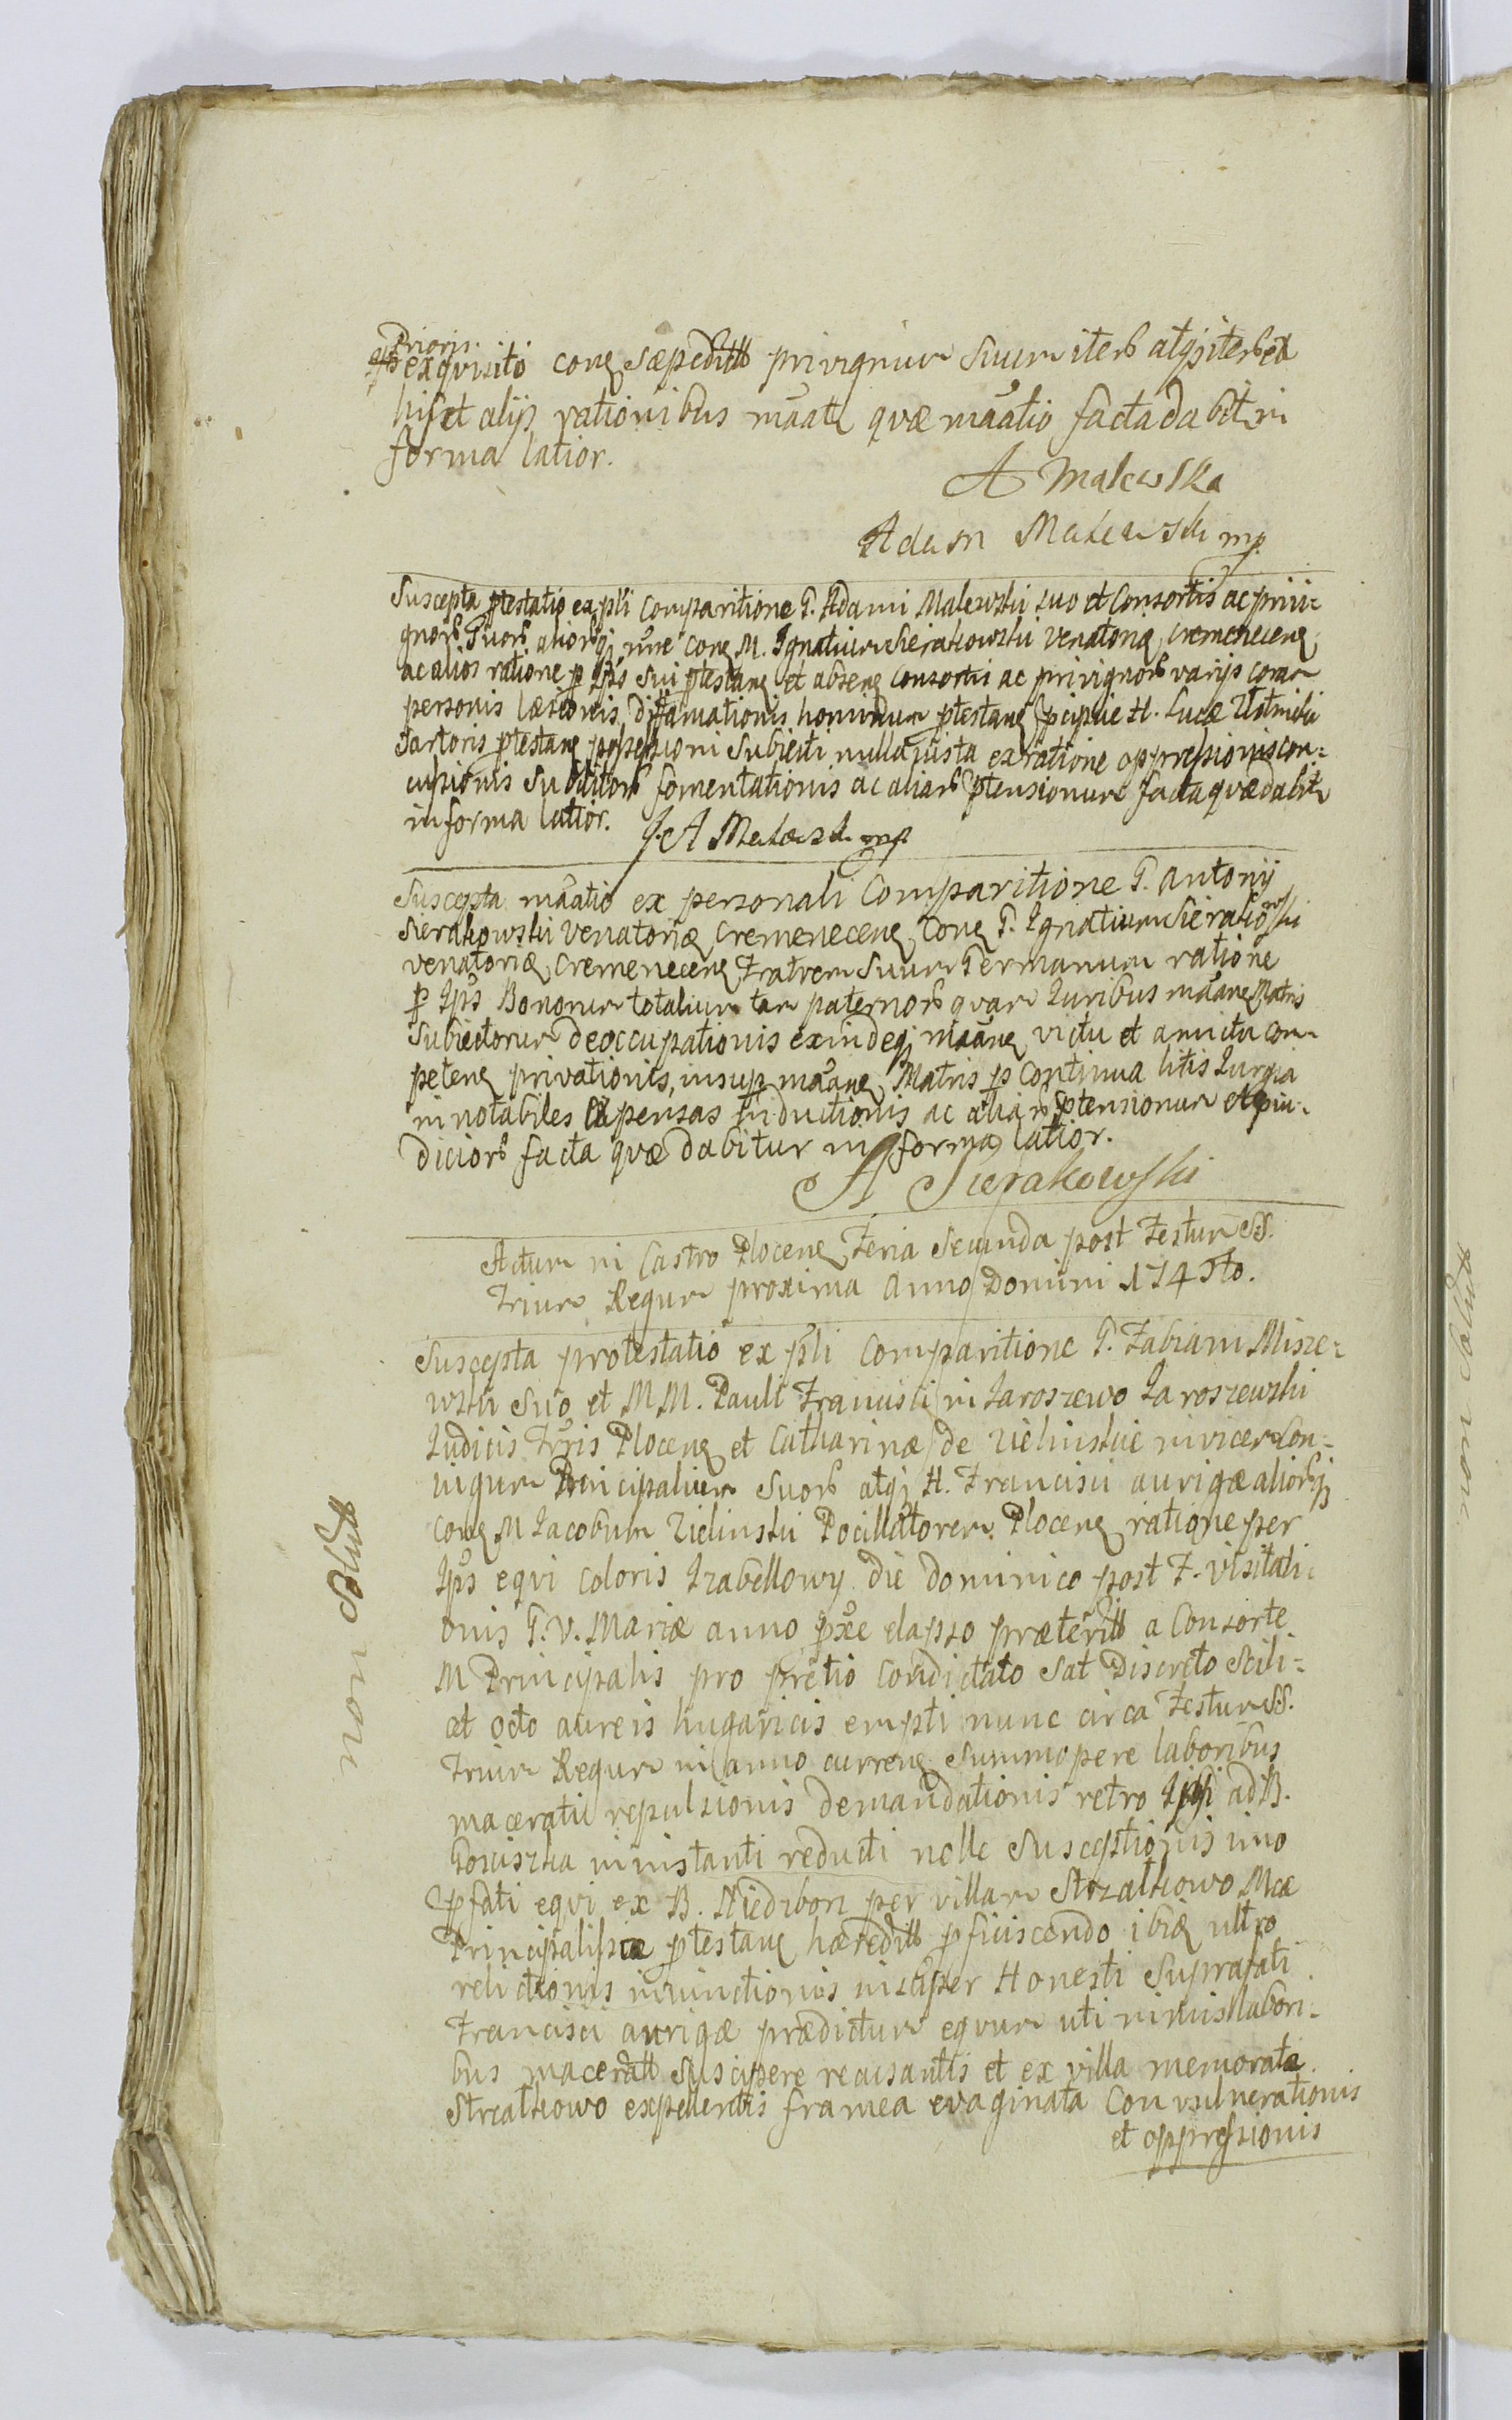 Prioris
exquisito cong sæpeditt privignum Suum iterb atqj iterb ex
his et alijs rationibus maatq quæ maatio facta dabitr in
forma latior.
A Malewska
Adam Malewski mp
Suscepta ptestatio ex pli Comparitione G. Adami Malewski suo et Consortis ac privi-
gnorb Suorb aliorbqj nne Cong M. Ignatium Sierakowski Venatorig Cremeneceng
ac alios ratione p Ips Sui ptestang et abseng Consortis ac privignorb varijs coram
personis læsionis, diffamationis hominum ptestang pcipue H. Lucæ
Sartoris ptestang possessioni Subiecti nulla iusta ex ratione oppressionis con-
cussionis Subditorb fomentationis ac aliarb ptensionum facta quæ dabitr
in forma latior. J. A Malewski mp
Suscepta maatio ex personali Comparitione G. Antonij
Sierakowski Venatoriæ Cremeneceng Cong G. Ignatium Sierakowski
venatoriæ Cremeneceng Fratrem Suum Germanum ratione
p Ips Bonorum totalium tam paternorb quam Iuribus maang Matris
Subiectorum deoccupationis exindeqj maang victu et amictu com-
peteng privationis, insup maang Matris p Continua litis Iurgia
in notabiles Expensas inductionis ac aliarb ptensionum et piu-
diciorb facta quæ dabitur in forma latior.
A Sierakowski
Actum in Castro Ploceng Feria Secunda post Festum SS.
Trium Regum proxima Anno Domini 1745to.
Suscepta protestatio ex pli Comparitione G. Fabiani Misze-
wski Suo et M M. Pauli Francisci in Jaroszewo Jaroszewski
Judicis Trris Ploceng et Catharinæ de Zielinskie invicem Con-
iugum Principalium Suorb atqj H. Francisci aurigæ aliorbqj
Cong M Jacobum Zielinski Pocillatorem Ploceng ratione per
Ips eqvi Coloris Izabellowy die dominico post F. visitati-
onis G. V. Mariæ anno pxe elapso præteritt a Consorte
M Principalis pro pretio Condictato Sat Discreto Scili-
cet octo aureis hugaricis empti nunc circa Festum SS.
Trium Regum in anno curreng Summopere laboribus
macerati repulsionis demandationis retro Ipsi ad B.
in instanti reducti nolle Susceptionis imo
pfati eqvi ex B. Niedrborz per villam Strzałkowo Mcæ
Principalissa ptestang hæreditt pficiscendo ibiq ultro
relictionis iniunctionis insuper Honesti Suprafati
Francisci aurigæ prædictum eqvum uti nimis labori-
bus maceratt Suscipere recusantis et ex villa memorata
Strzalkowo expellentis framea evaginata Convulnerationis
et oppressionis
non Solut
non Solut